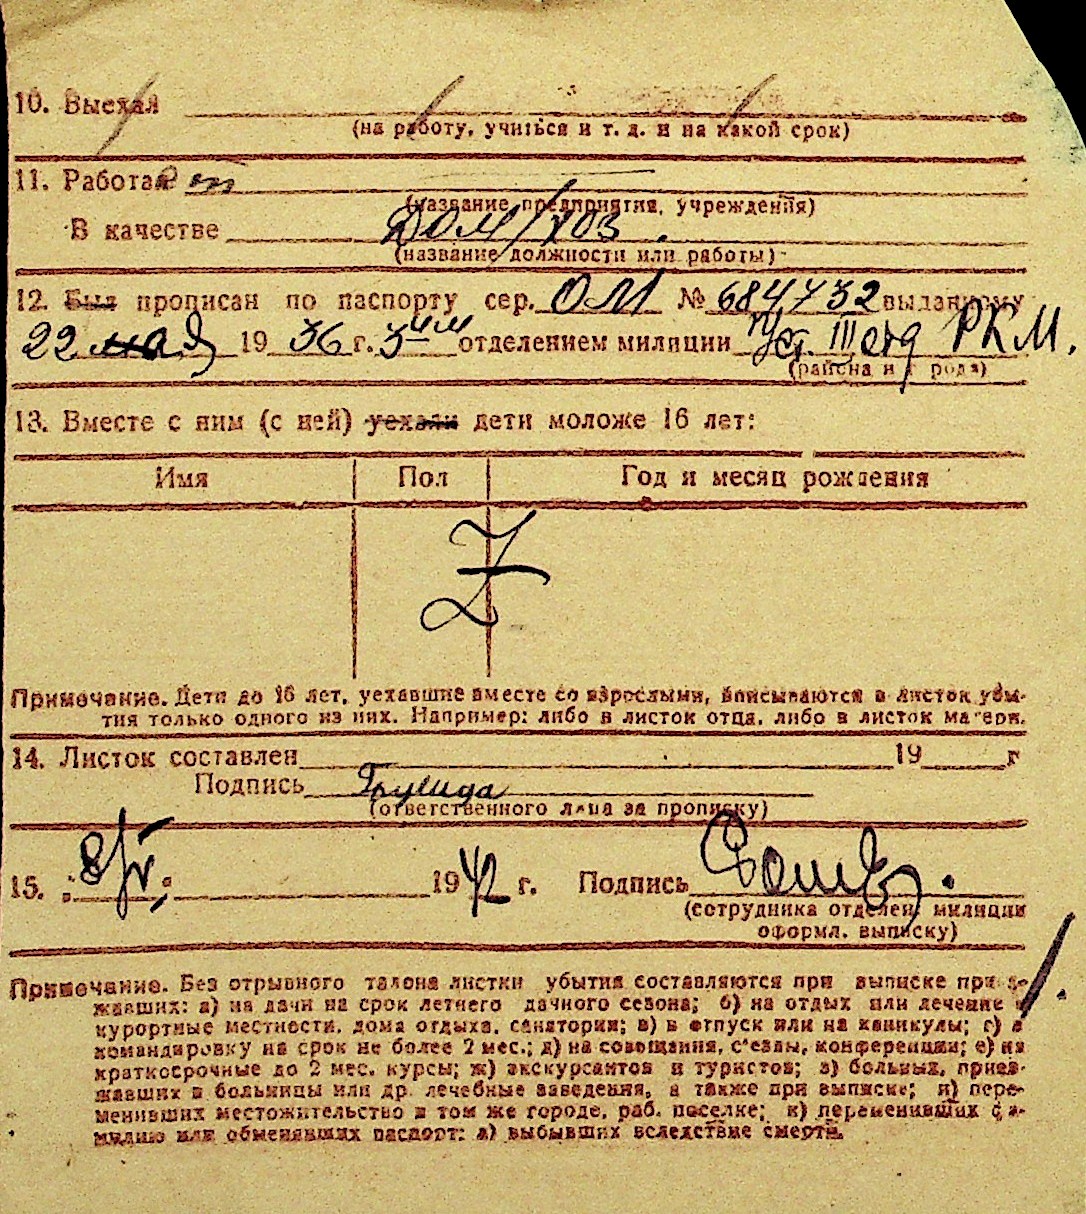 10. Выехал
(на работу, учиться и т. д. и на какой срок)
11. Работал
(название предприятия, учреждения)
В качестве дом/хоз.
(название должности или работы)
12. Был прописан по паспорту сер. ОМ № 684732 выданному
22 мая 1936 г. 3 отделением милиции III отд РКМ.
(района и города)
13. Вместе с ним (с ней) уехали дети моложе 16 лет:
Имя Пол Год и месяц рождения
Z
Примечание. Дети до 16 лет, уехавшие вместе со взрослыми, вписываются в листок убы-
тия только одного из них. Например: либо в листок отца, либо в листок матери.
14. Листок составлен 19 г
Подпись
(ответственного лица за прописку)
15. 8/V 1942 г. Подпись
(сотрудника отделен. милиции
оформл. выписку)
Примечание. Без отрывного талона листки убытия составляются при выписке приез-
жавших: а) на дачи на срок летнего дачного сезона; б) на отдых или лечение в
курортные местности, дома отдыха, санатории; в) в отпуск или на каникулы; г) в
командировку на срок не более 2 мес.; д) на совещания, с'езды, конференции; е) на
краткосрочные до 2 мес. курсы; ж) экскурсантов и туристов; з) больных, приез-
жавших в больницы или др. лечебные заведения, а также при выписке; и) пере-
менивших местожительство в том же городе, раб. поселке; к) переменивших фа-
милию или обменявших паспорт; л) выбывших вследствие смерти.